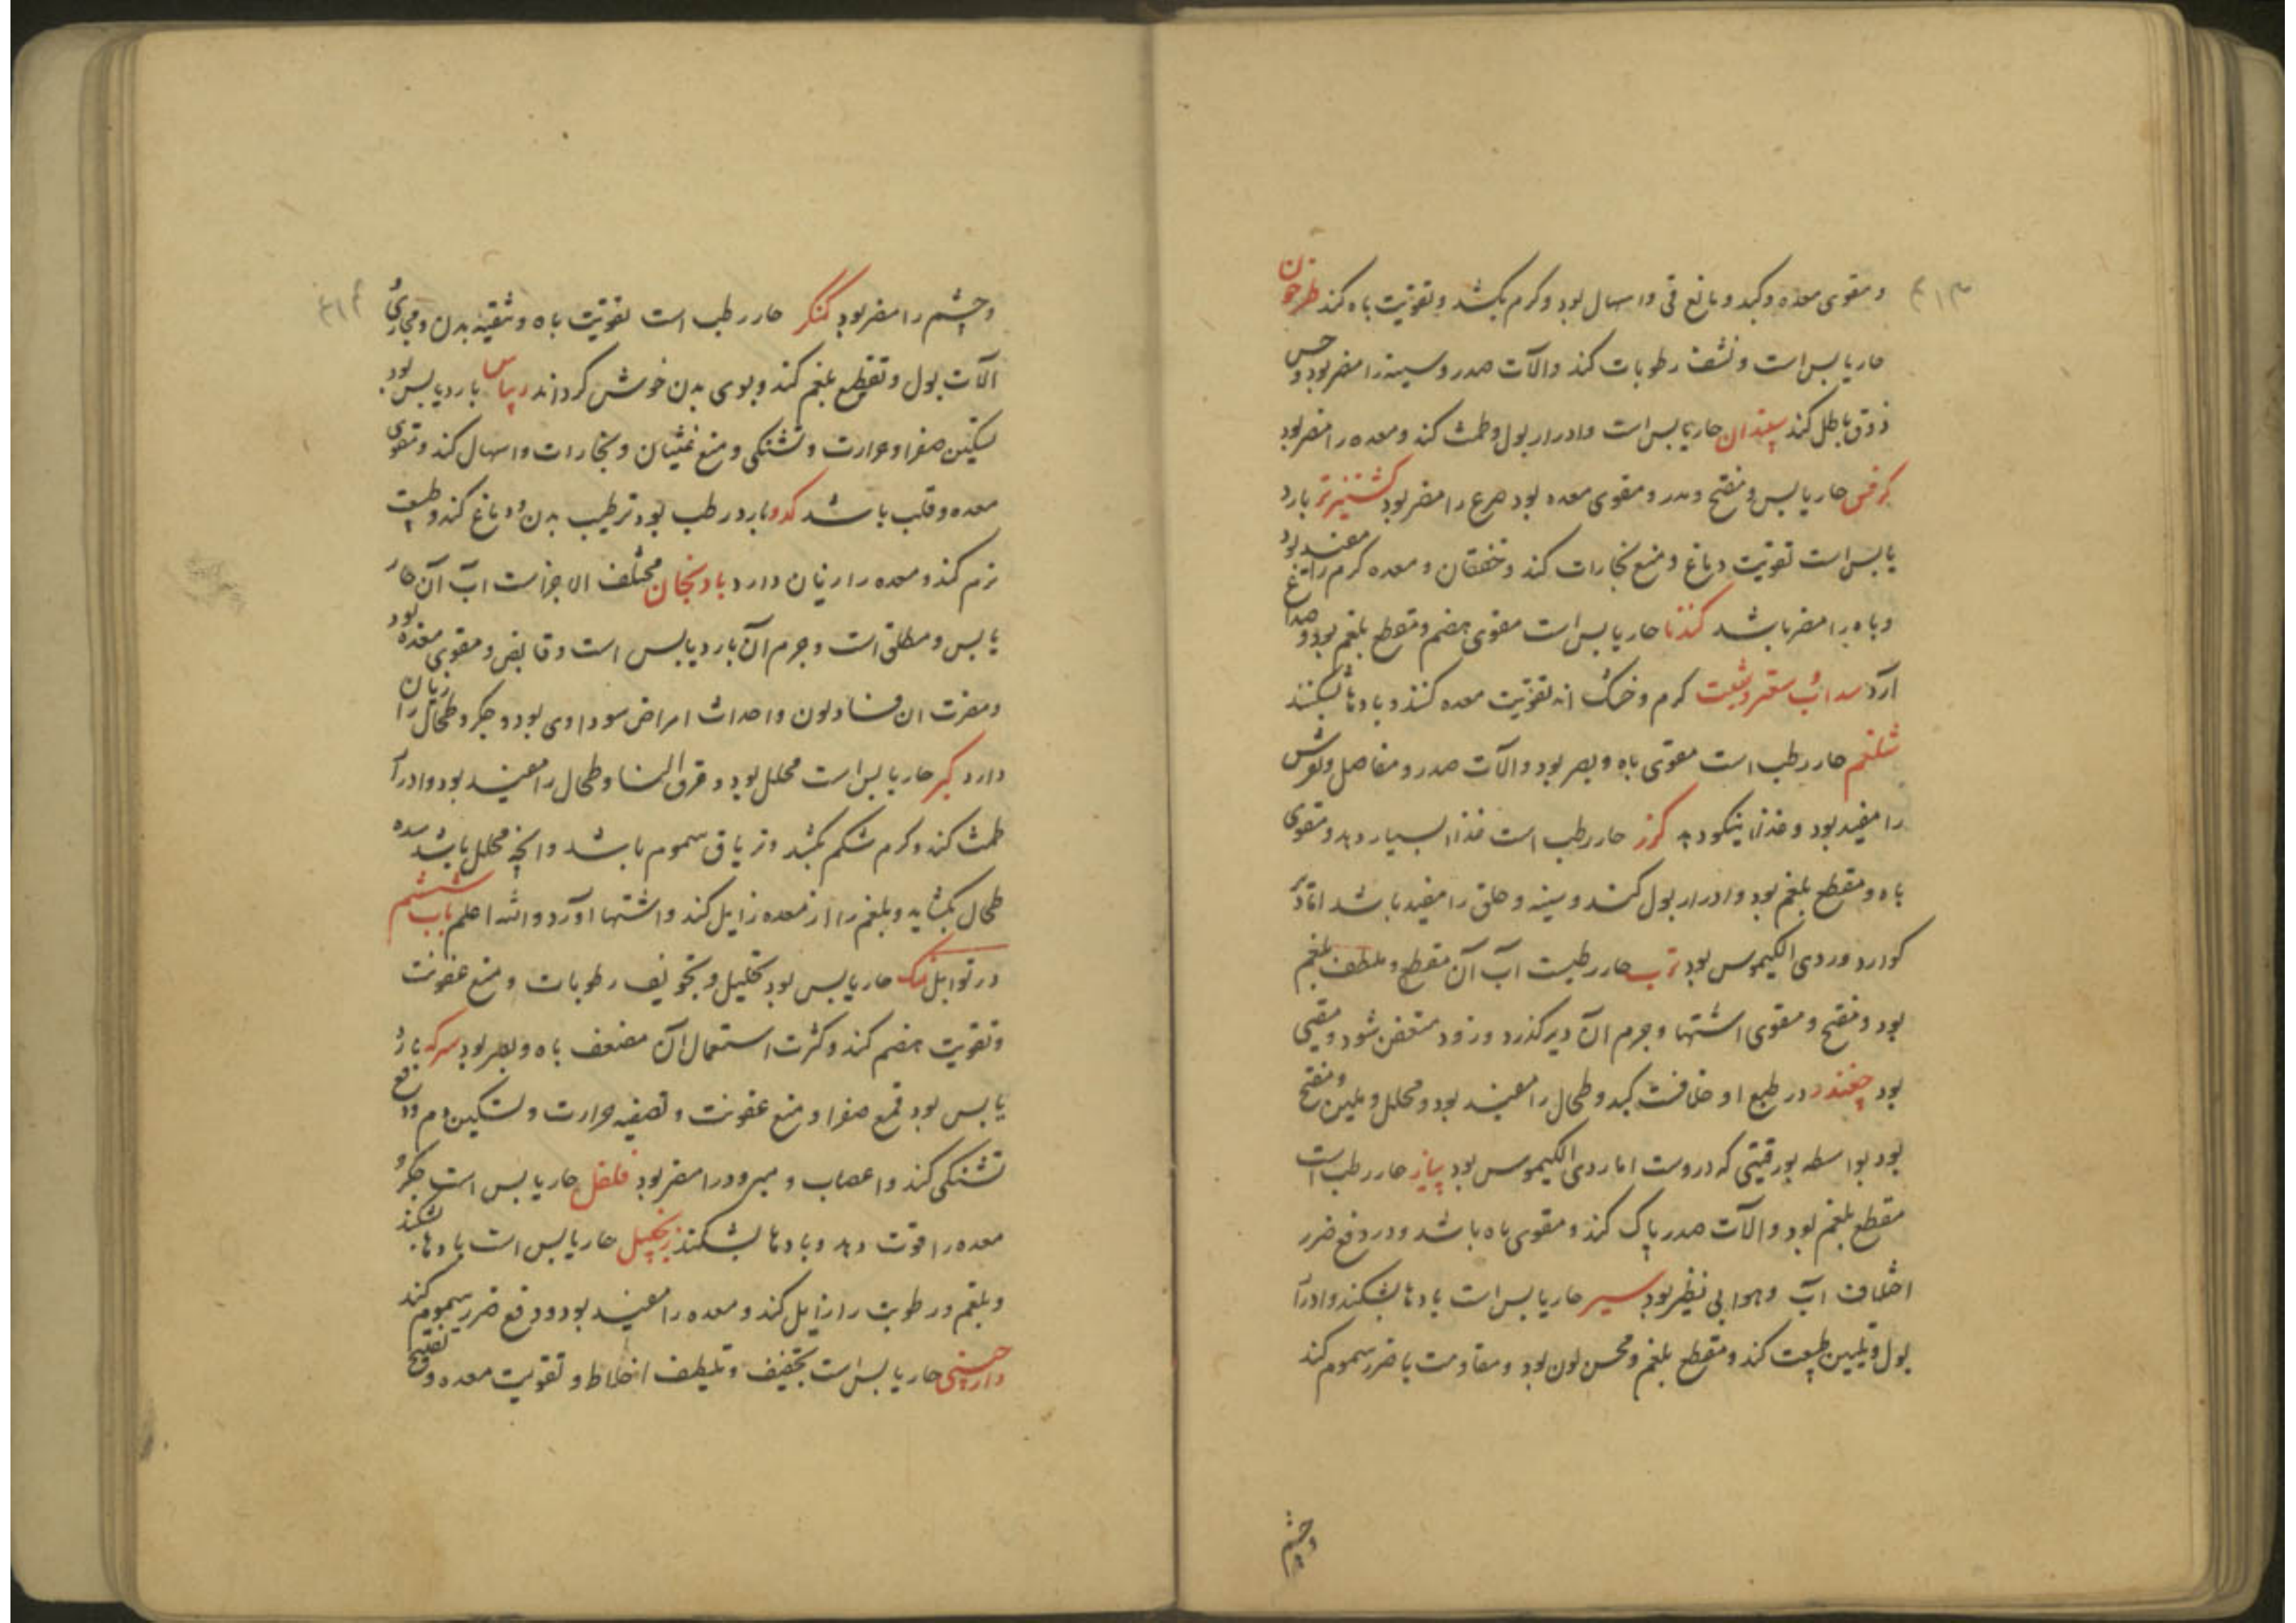 ۴۱۳
و مقوی معده و کبد و مانع قی و اسهال بود و کرم بکشد و تقویت باه کند طرخون
حار یابس است و نشف رطوبات کند و الآت صدر و سینه را مضر بود و حس
ذوق باطل کند سپندان حار یابس است و ادرار بول و طمث کند و معده را مضر بود
کرفس حار یابس و مفتح و مدر و مقوی معده بود صرع را مضر بود کشنیز تر بارد
یابس است تقویت دماغ و منع بخارات کند و خفقان و معده کرم را مفید بود
و باه را مضر باشد کندنا حار یابس است مقوی هضم و مقطع بلغم بود و صداع
آرد سداب سعتر و شبت کرم و خشک اند تقویت معده کنند و بادها بشکنند
شلغم حار رطب است مقوی باه و بصر بود و الآت صدر و مفاصل و نقرس
را مفید بود و غذا نیکو دهد کزر حار رطب است غذا بسیار دهد و مقوی
باه و مقطع بلغم بود و ادرار بول کند و سینه و حلق را مفید باشد اما دیر
کوارد و ردی الکیموس بود ترب حار رطبست آب آن مقطع و ملطف بلغم
بود و مفتح و مقوی اشتها و جرم آن دیر کذرد و زود متعفن شود و مقیی
بود چغندر در طبع او خلافست کبد و طحال را مفید بود و محلل و ملین و مفتح
بود بواسطه بورقیتی که دروست اما ردی الکیموس بود پیاز حار رطب است
مقطع بلغم بود و الآت صدر پاک کند و مقوی باه باشد و در دفع ضرر
اختلاف آب و هوا بی نظیر بود سیر حار یابس است بادها بشکند و ادرآ
بول و تلیین طبیعت کند و مقطع بلغم و محسن لون بود و مقاومت با ضرر سموم کند
و چشم
۴۱۴
و چشم را مضر بود کنکر حار رطب است تقویت باه و تنقیه بدن و مجاری
الآت بول و تقطیع بلغم کند و بوی بدن خوش کرداند ریباس بارد یابس بود
تسکین صفرا و حرارت و تشنکی و منع غثیان و بخارات و اسهال کند و مقوی
معده و قلب باشد کدو بارد رطب بود ترطیب بدن و دماغ کند و طبیعت
نرم کند و معده را زیان دارد بادنجان مختلف الاجزاست آب آن حار
یابس و مطلق است و جرم آن بارد یابس است و قابض و مقوی معده بود
و مضرت ان فساد لون و احداث امراض سوداوی بود و جکر و طحال را زیان
دارد کبر حار یابس است محلل بود و عرق النسا و طحال را مفید بود و ادرآ
طمث کند و کرم شکم بکشد و تریاق سموم باشد و انچه محلل باشد سده
طحال بکشاید و بلغم را از معده زایل کند و اشتها آورد و الله اعلم باب ششم
در توابل نمک حار یابس بود تحلیل و تجفیف رطوبات و منع عفونت
و تقویت هضم کند و کثرت استعمال آن مضعف باه و بصر بود سرکه بارد
یابس بود قمع صفرا و منع عفونت و تصفیه حرارت و تسکین دم و دفع
تشنکی کند و اعصاب و مبرود را مضر بود فلفل حار یابس است جکر و
معده را قوت دهد و بادها بشکند زنجبیل حار یابس است بادها بشکند
و بلغم و رطوبت را زایل کند و معده را مفید بود و دفع ضرر سموم کند
دارچینی حار یابس است تجفیف و تلطیف اخلاط و تقویت معده و تفتیح